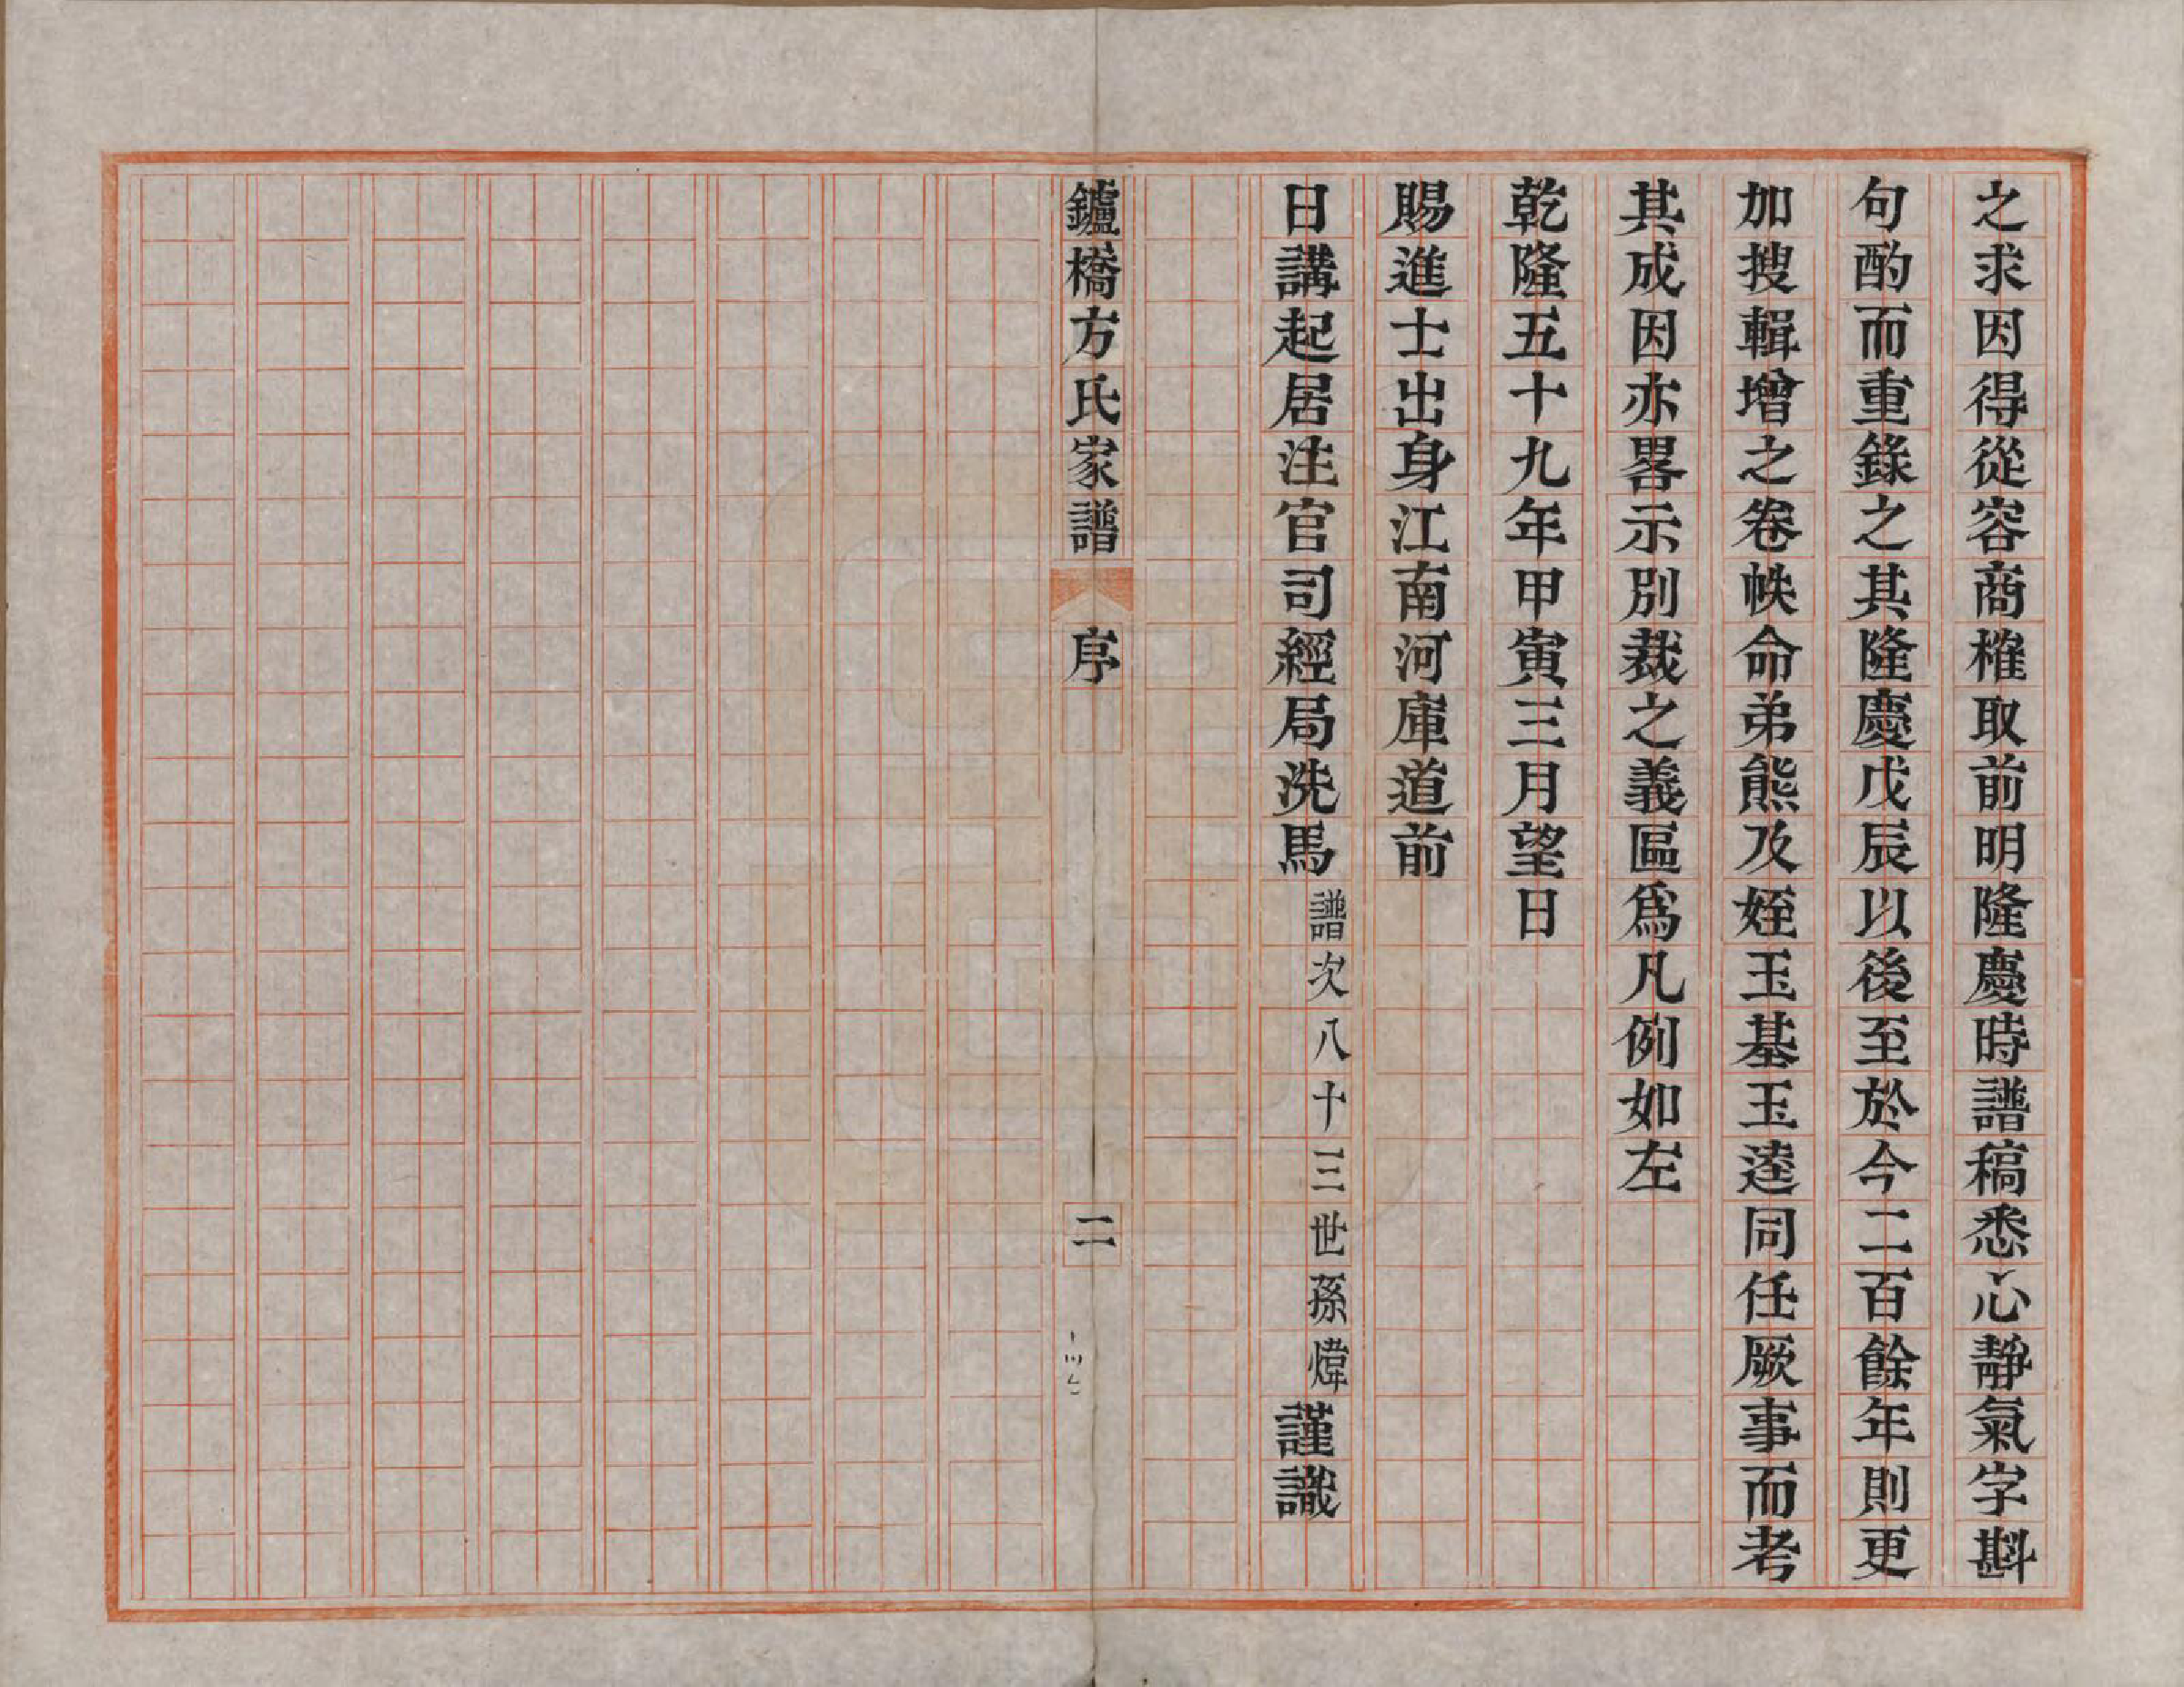 之求因得從容商榷取前明隆慶時譜稿悉心靜氣字斟
句酌而重錄之其隆慶戊辰以後至於今二百餘年則更
加搜輯增之卷帙命弟熊及姪玉基玉逵同任厥事而考
其成因亦畧示別裁之義區爲凡例如左
乾隆五十九年甲寅三月望日
賜進士出身江南河庫道前
日講起居注官司經局洗馬譜次八十三世孫煒謹識
鑪橋方氏家譜 序 二